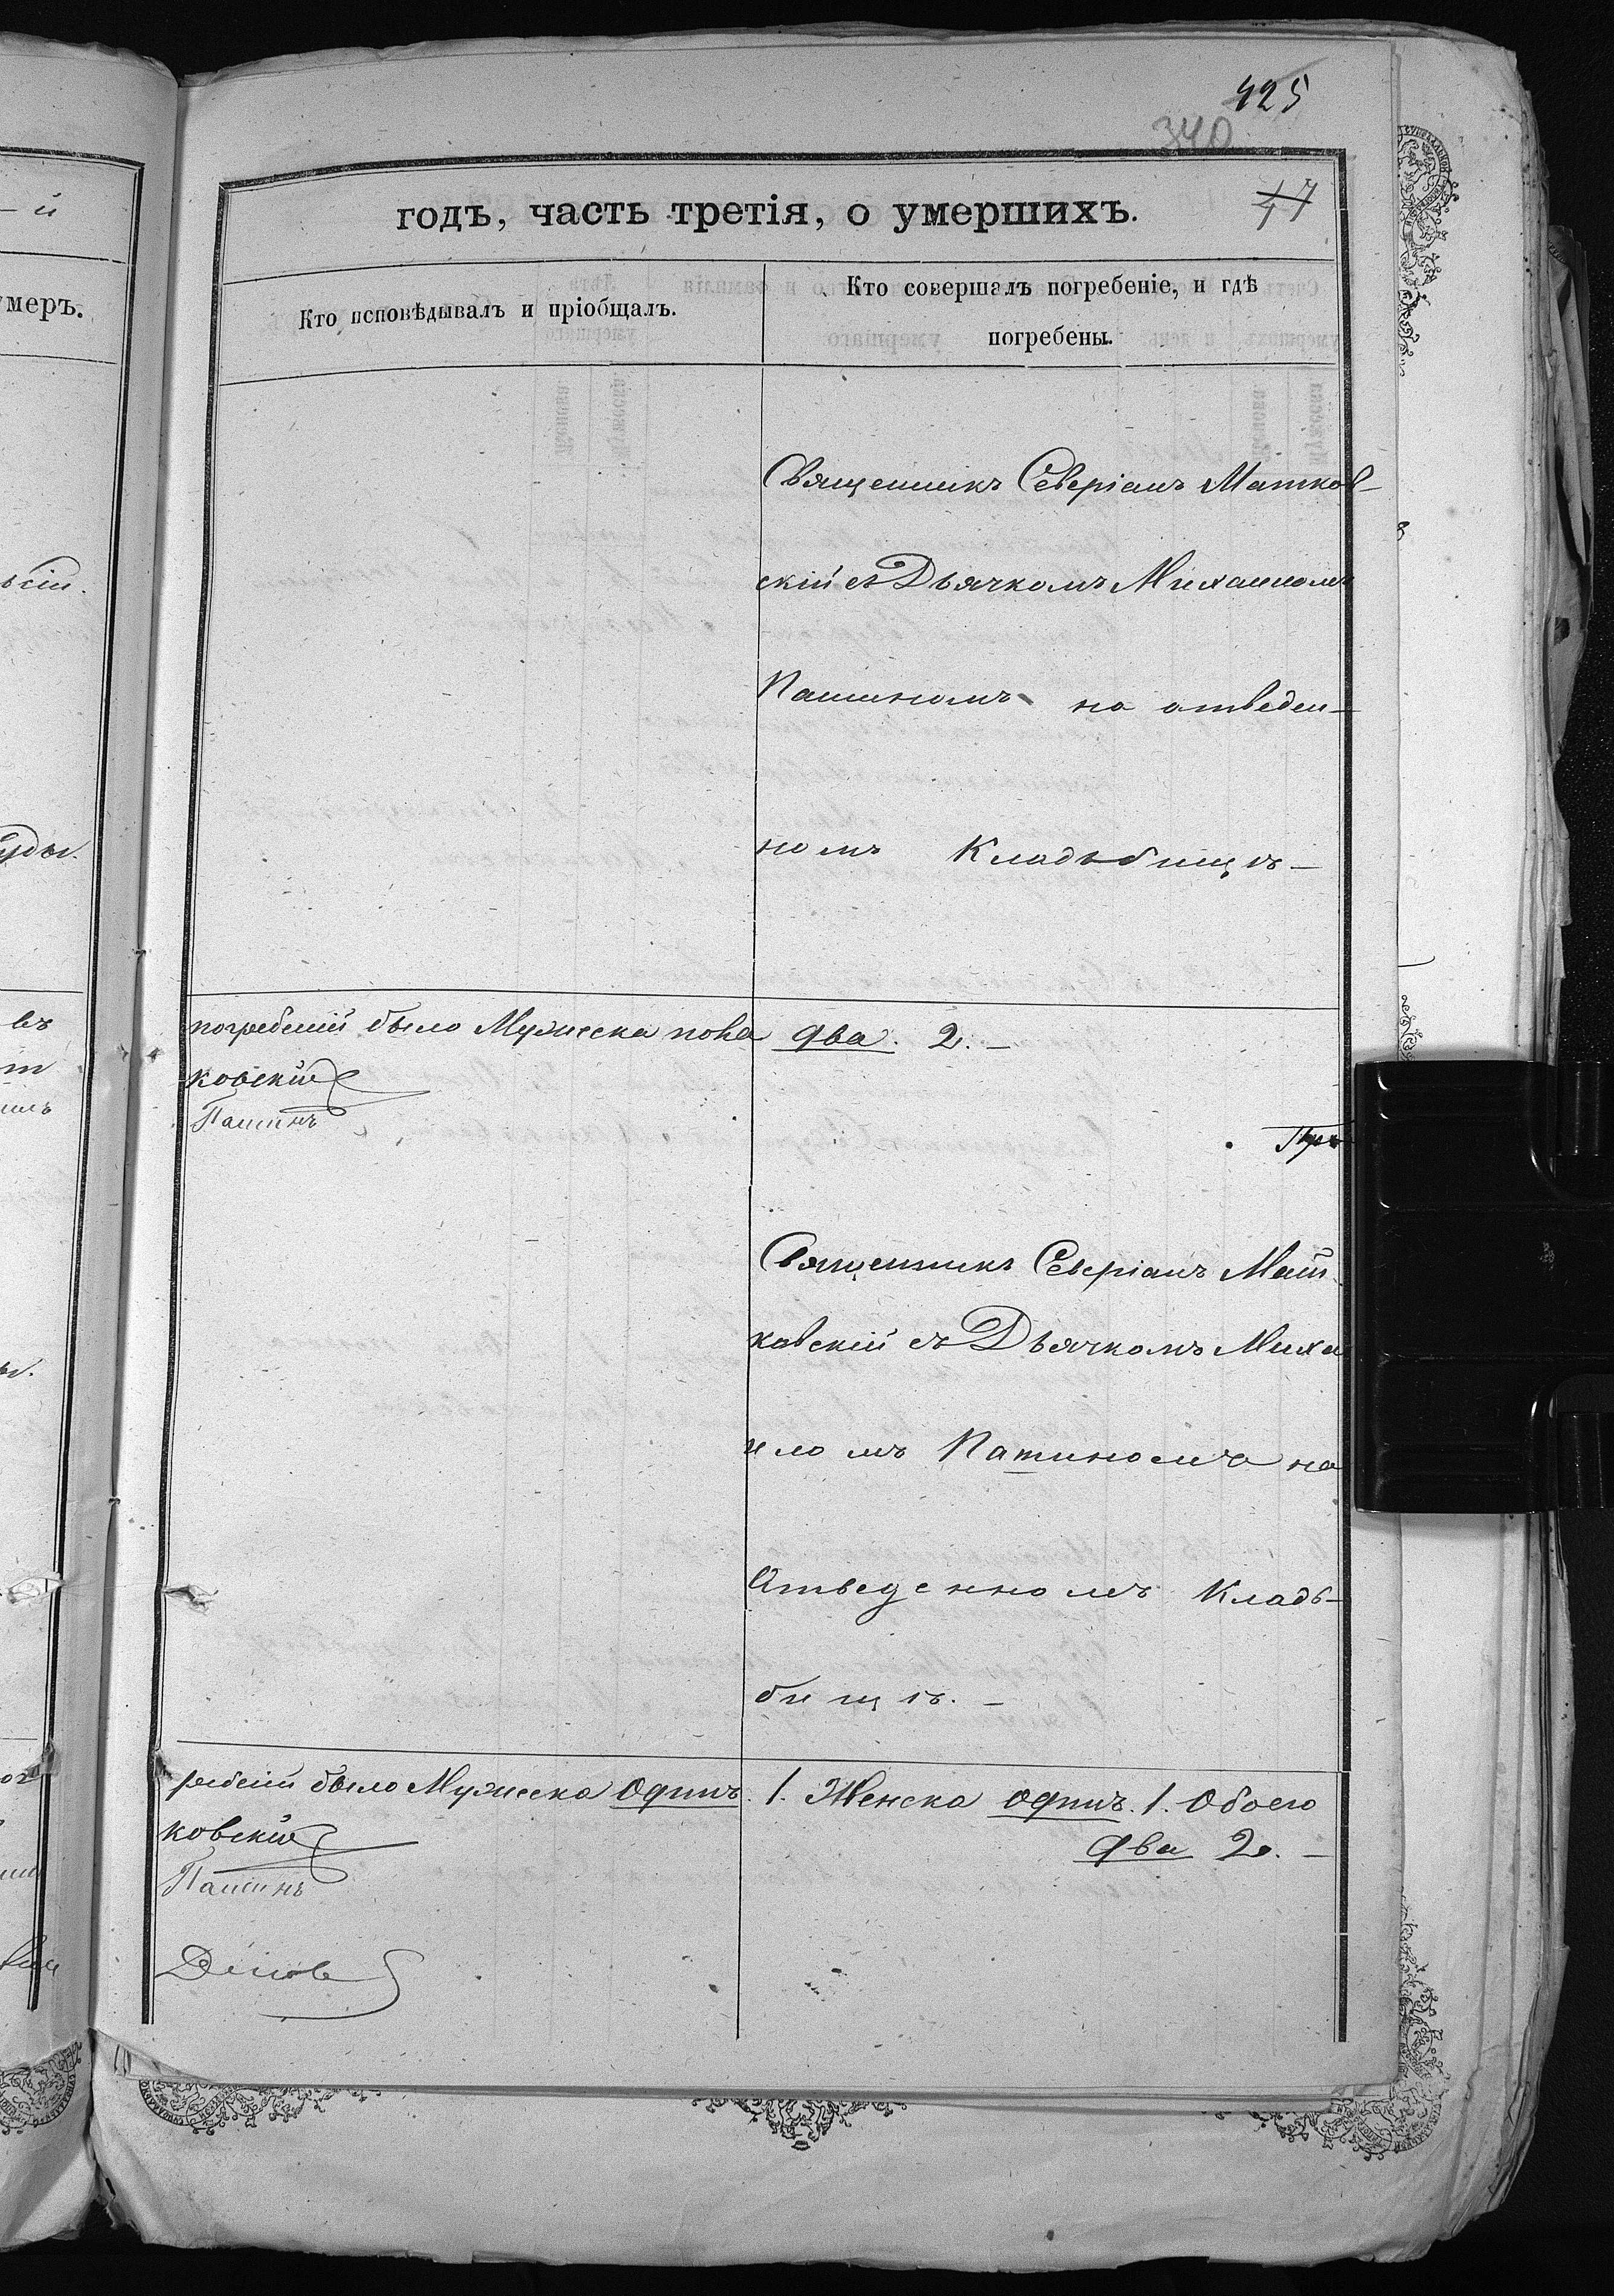 425
340
47
годъ, часть третія, о умершихъ.
Кто исповѣдывалъ и пріобщалъ.
Кто совершалъ погребеніе, и гдѣ
погребены.
умеръ.
Священникъ Северіанъ Матков-
скій съ Дьячкомъ Михаиломъ
Пашиномъ на отведен-
номъ Кладьбищѣ-
погребеній было Мужеска пола два. 2.-
ковскій
Пашинъ
Священникъ Северіанъ Мат-
ковскій съ Дьячкомъ Миха
иломъ Пашиномъ на
Отведенномъ Кладь-
бищѣ.-
ребеній было Мужеска одинъ. 1. Женска одинъ. 1. Обоего
два 2.-
ковскій
Пашинъ